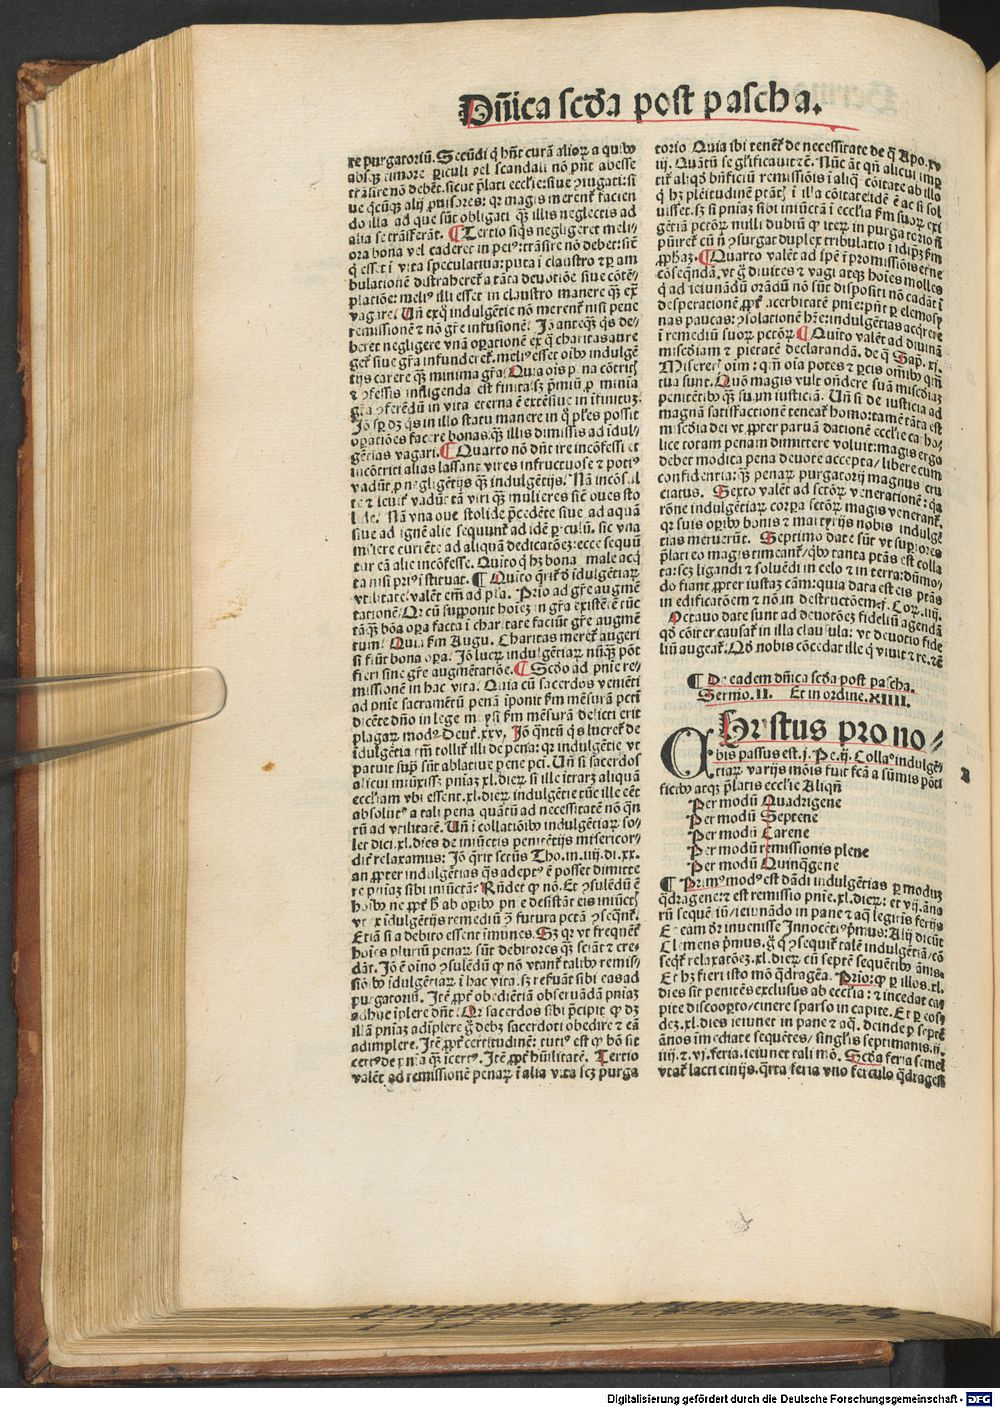 Dn̄ica scd̄a post pascha.
re purgatoriū. Secūdi q̄ hn̄t curā alioꝝ a quibꝰ
absqꝫ timore periculi vel scandali nō pn̄t abesse
trāsire nō debēt. sicut p̄lati ecclie: siue ꝯiugati: si
ue q̄cūqꝫ alij ꝓuisores: qꝛ magis merent᷑ facien
do illa ad que sūt obligati qꝫ illis neglectis ad
alia se trāsferāt. ¶ Tertio siq̄s negligeret meli/
ora bona vel caderet in peiꝰ: trāsire nō debet: sic̄
q̄ esset ī vita speculatiua: puta ī claustro ⁊ ꝑ am
bulationē distraheret᷑ a tāta deuotiōe siue cōtē/
platiōe: meliꝰ illi esset in claustro manere qꝫ ex̄
vagare. Vn̄ ex q̄ indulgētie nō merent᷑ nisi pene
remissionē ⁊ nō gr̄e infusionē. Jō anteqꝫ q̄s de/
beret negligere vnā oꝑationē ex q̄ charitas aure
get᷑ siue gr̄a infunderet᷑. meliꝰ esset oībꝰ indulgē
tijs carere qꝫ minima gr̄a. Quia oīs pena cōtritꝭ
⁊ ꝯfessis infligenda est finita. sꝫ p̄miū ꝓ minia
gr̄a ꝯferēdū in vita eterna ē extēsiue in īfinitū:
Jō sꝑ dꝫ q̄s in illo statu manere in q̄ pl̄es possit
oꝑatiōes facere bonas. qꝫ illis dimissis ad īdul/
gētias vagari. ¶ Quarto nō dn̄t ire incōfessi et
incōtriti alias lassant vires infructuose ⁊ potiꝰ
vadūt ꝓ negligētijs qꝫ indulgētijs. Nā incōsul
te ⁊ ieiun᷑ vadūt tā viri qꝫ mulieres sic̄ oues sto
lide. Nā vna oue stolide p̄cedēte siue ad aquā
siue ad ignē alie sequunt᷑ ad idē ꝑiculū. sic vna
muliere currēte ad aliquā dedicatōeꝫ: ecce sequū
tur eā alie incōfesse. Quito q̄ hꝫ bona male acq̄
ta nisi priꝰ restituat. ¶ Quito q̄rit᷑ d̄ īdulgētiaꝝ
vtilitate. valēt em̄ ad pl̄a. Prio ad gr̄e augmē
tationē. Qꝛ cū suꝑponit hoīeꝫ in gr̄a existē. ē tūc
tāqꝫ bōa oꝑa facta ī charitate faciūt gr̄e augmē
tum. Quia s̄m Augu. Charitas meret᷑ augeri
si fiūt bona oꝑa. Jō lucrū indulgētiaꝝ nūqꝫ pōt
fieri sine gr̄e augmētatiōe. ¶ Scd̄o ad pnīe re/
missionē in hac vita. Quia cū sacerdos veniēti
ad pnīe sacramētū penā īponit s̄m mēsurā pctī
dicēte dn̄o in lege moysi s̄m mēsurā delicti erit
plagaꝝ modꝰ Deut᷑. xxv. Jō q̄ntū q̄s lucret᷑ de
īdulgētia tm̄ tollit᷑ illi de pena: qꝛ indulgētie vt
patuit supͣ sūt ablatiue pene pcī. Vn̄ si sacerdos
alicui iniūxisset pniaꝫ xl. dieꝝ si ille itrarꝫ aliquā
eccliam vbi essent xl. dieꝝ indulgētie tūc ille eēt
absolutꝰ a tali pena quātū ad necessitatē nō q̄n
tū ad vtilitatē. Vn̄ ī collatiōībꝰ indulgētiaꝝ so/
let dici. xl. dies de iniūctis penitētijs misericor/
dit᷑ relaxamus: Jō q̄rit sctūs Tho. in. iiij. di. xx.
an ꝓpter indulgētias q̄s adeptꝰ ē posset dimitte
re pniaꝫ sibi iniūctā. Rn̄det ꝙ nō. Et ꝯsulēdū ē
hoībꝰ ne ꝓpt᷑ h̄ ab oꝑibꝰ pnīe desistāt eis iniūctꝭ
vt ex īdulgētijs remediū ꝯ̄ futura pctā ꝯseqn̄t᷑.
Etiā si a debito essent īmunes. Sꝫ qꝛ vt frequēt᷑
hoīes pluriū penaꝝ sūt debitores qꝫ sciāt ⁊ cre/
dāt. Jō ē oīno ꝯsulēdū ꝙ nō vtant᷑ talibꝰ remis/
siōībꝰ īdulgētiaꝝ ī hac vita. sꝫ refuāt sibi eas ad
purgatoriū. Jtē ꝓpt᷑ obediētiā obseruādā pniaꝫ
adhuc īplere dn̄t. Qꝛ sacerdos sibi p̄cipit ꝙ dꝫ
illā pniaꝫ adīplere ḡ debꝫ sacerdoti obedire ⁊ eā
adimplere. Jtē ꝓpt᷑ certitudinē: tutiꝰ est ꝙ hō sit
certꝰ de pnīa qꝫ īcertꝰ. Jtē ꝓpt᷑ hūilitatē. Tertio
valēt ad remissionē penaꝝ ī alia vita scꝫ purga
torio Quia ibi tenet᷑ de necessitate de q̄ Apo. xv
iij. Quātū se gl̄ificauit ⁊c̄. Nūc āt qn̄ alicui imꝑ
tit᷑ aliqd̄ bn̄ficiū remissiōis ī aliq̄ cōitate ab illo
q̄ hꝫ plēitudinē ptātꝭ ī illa cōitate idē ē ac si sol
uisset. sꝫ si pniaꝫ sibi iniūctā ī ecclia s̄m suoꝝ exi
gētiā pctōꝝ nulli dubiū ꝙ iteꝝ in purgatorio nō
pūiret᷑ cū nō ꝯsurgat duplex tribulatio ī idipꝫ s̄m
ꝓphaꝫ. ¶ Quarto valēt ad spē ī ꝓmissiōis etne
cōseqn̄dā. vt q̄ diuites ⁊ vagi atqꝫ hoīes molles
q̄ ad ieiunādū orādū nō sūt dispositi nō cadāt ī
desperationē ꝓpt᷑ acerbitatē pnīe: pn̄t ꝑ elemosy
nas paucas: ꝯsolationē hr̄e: indulgētias acq̄rere
ī remediū suoꝝ pctōꝝ ¶ Quito valēt ad diuinā
misc̄diam ⁊ pietatē declarandā. de q̄ Sap. xj.
Misereris oīm: qm̄ oīa potes ⁊ ꝑcis omībꝰ qm̄
tua sunt. Quō magis vult ondere suā misc̄diaꝫ
penitētibꝰ qꝫ suam iusticiā. Vn̄ si de iusticia ad
magnā satisfactionē teneat᷑ homo: tamē tāta est
misc̄dia dei vt ꝓpter paruā dationē ecclie catho/
lice totam penam dimittere voluit: magis ergo
debet modica pena deuote accepta/ libere cum
confidentia: qꝫ penaꝝ purgatorij magnus cru
ciatus. Sexto valēt ad sctōꝝ venerationē: qa
rōne indulgētiaꝝ corꝑa sctōꝝ magis venerant᷑.
qꝛ suis oꝑibꝰ bonis ⁊ martyrijs nobis indulgē
tias meruerūt. Septimo date sūt vt suꝑiores
p̄lati eo magis timeant᷑/ qbꝰ tanta ptās est colla
ta: scꝫ ligandi ⁊ soluēdi in celo ⁊ in terra: dūmo/
do fiant ꝓpter iustaꝫ cām: quia data est eis ptās
in edificatōem ⁊ nō in destructōem. j. Cor. iiij.
Octauo date sunt ad deuotōeꝫ fideliū agendā
qd̄ cōiter causat᷑ in illa clausula: vt deuotio fide
liū augeat᷑. Qd̄ nobis cōcedat ille q̄ viuit ⁊ re. ⁊c̄
¶ De eadem dn̄ica scd̄a post pascha.
Sermo. II. Et in ordine. XIIII.
CHristus pro no⸗
bis passus est. j. Pe. ij. Collaꝰ indulgē/
tiaꝝ varijs mōis fuit fc̄a a sūmis pōti
ficibꝰ atqꝫ p̄latis ecclie Aliqn̄
Per modū Quadrigene
Per modū Septene
Per modū Carene
Per modū remissionis plene
Per modū Quinqꝫgene
¶ Primꝰ modꝰ est dādi indulgētias ꝑ moduꝫ
q̄dragene: ⁊ est remissio pnīe. xl. dieꝝ: et vij. āno
rū sequētiū/ ieiunādo in pane ⁊ aq̄ legitīs ferijs
Et eam dr̄ inuenisse Innocētiꝰ p̄mus: Alij dicūt
Clemens p̄mus. q̄ q̄ ꝯsequit᷑ talē indulgētiā/ cō
seqt᷑ relaxatōeꝫ. xl. dieꝝ cū septē sequētibꝰ ānis.
Et hꝫ fieri isto mō q̄dragēa. Prio: ꝙ ꝑ illos. xl.
dies sit penitēs exclusus ab ecclia: ⁊ incedat ca/
pite discooꝑto/ cinere sparso in capite. Et ꝑ eosꝫ
deꝫ. xl. dies ieiunet in pane ⁊ aq̄. deinde ꝑ septē
ānos īmediate sequētes/ singlīs septimanis. ij.
iiij. ⁊. vj. feria. ieiunet tali mō. Scd̄a feria semel
vtat᷑ lacticinijs. q̄rta feria vno ferculo q̄dragesi
Digitalisierung gefördert durch die Deutsche Forschungsgemeinschaft - DFG